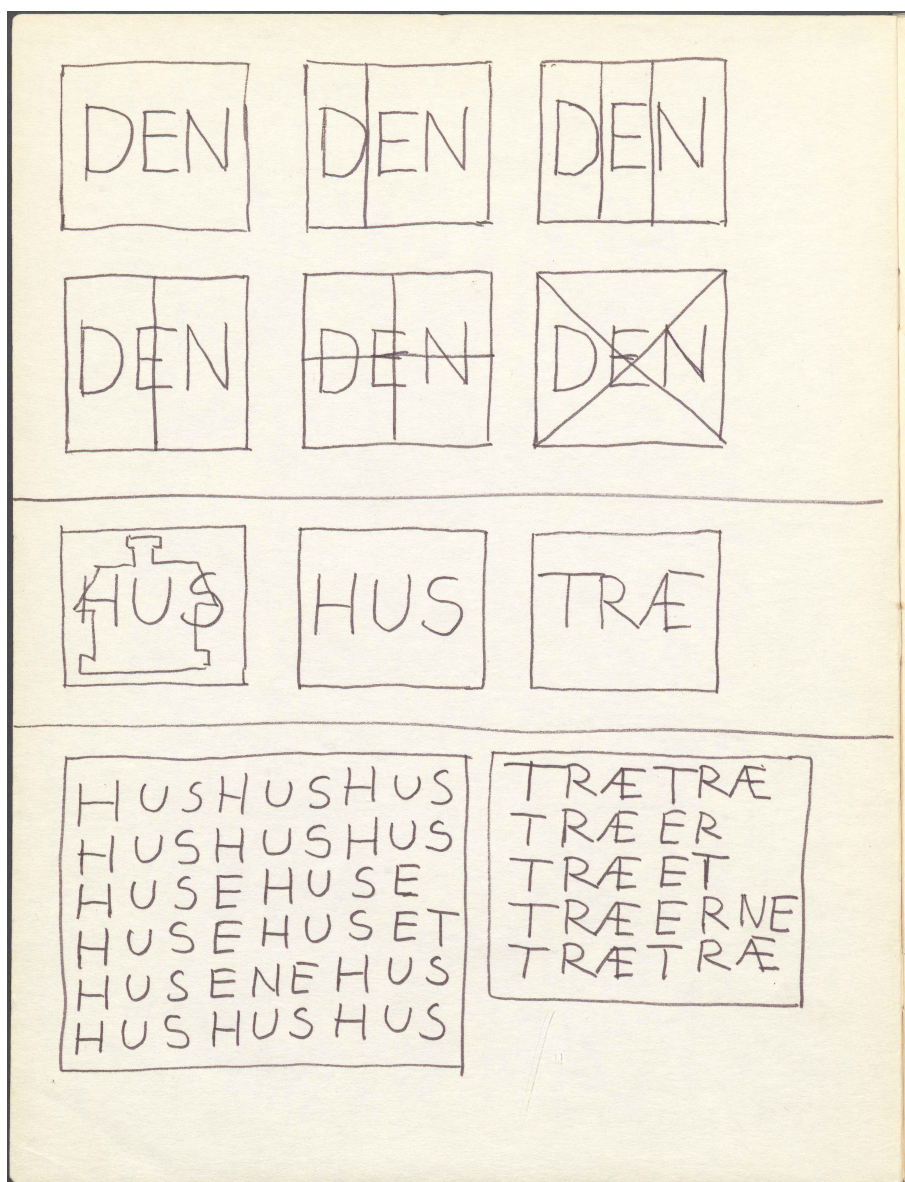 DEN DEN DEN
DEN DEN DEN
HUS HUS TRÆ
HUS HUS HUS
HUS HUS HUS
HUSE HUSE
HUSE HUSET
HUSENE HUS
HUS HUS HUS
TRÆ TRÆ
TRÆ ER
TRÆ ET
TRÆ ERNE
TRÆ TRÆ